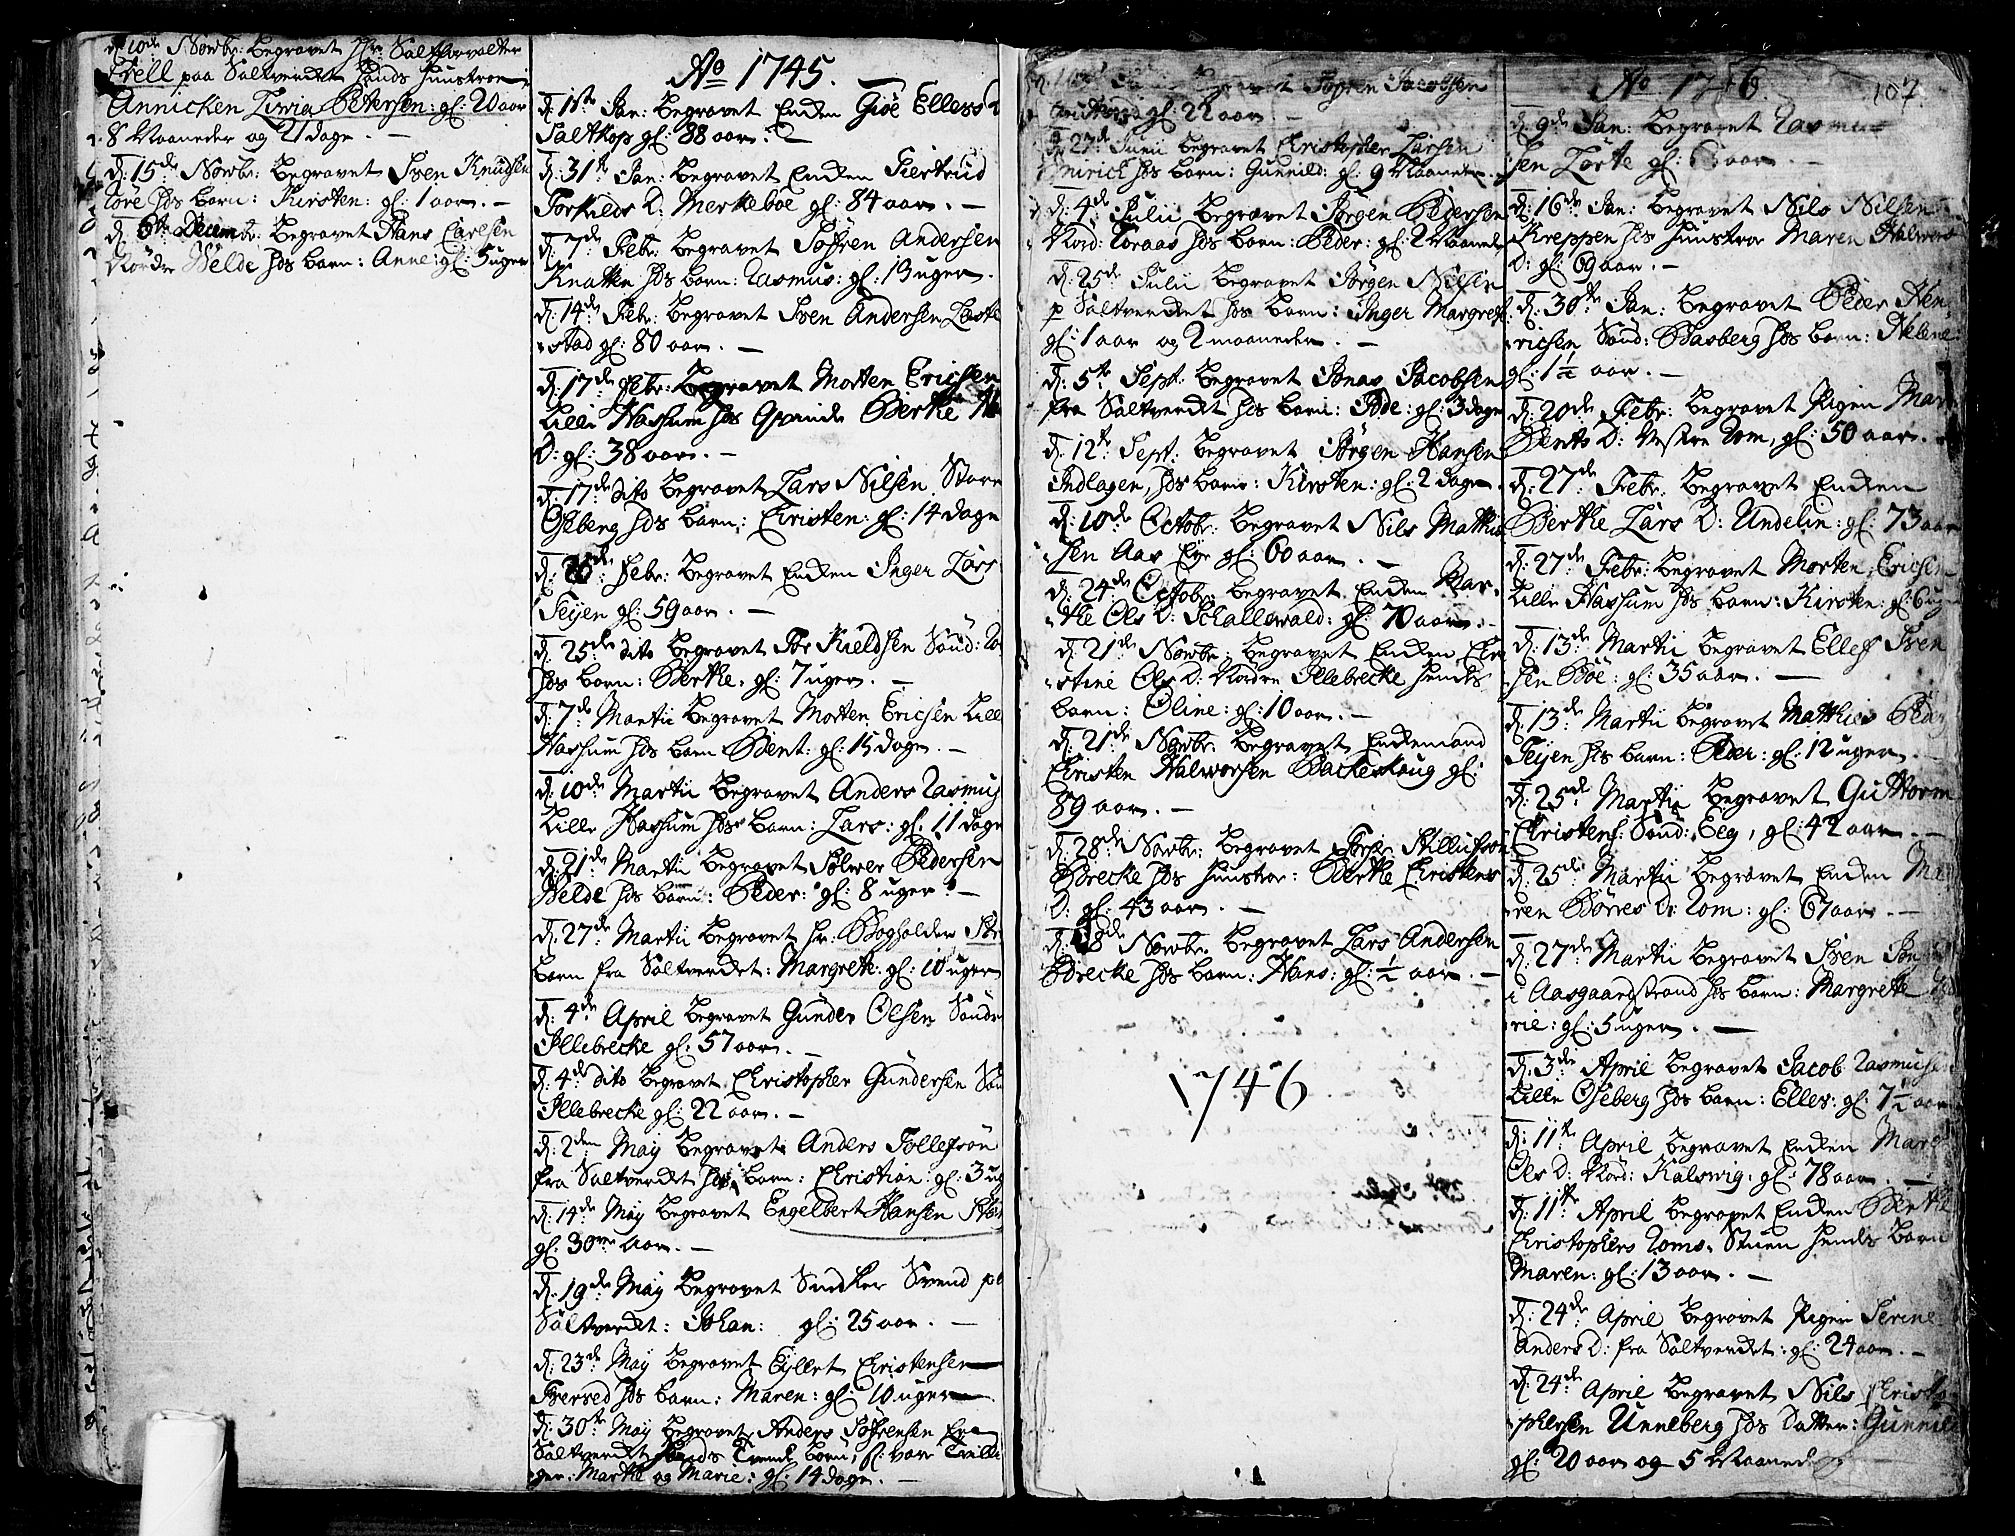 d: 10de Novbr: begravet Hr: Saltforvalter
paa Saltverchet hands hustroe
Annichen Liwia Petersen: gl: 20 aar
8 Maaneder og 21 dage. —
d: 15de Novbr: begravet Sven Knudsen
hds barn: Kirsten: gl: 1 aar. —
d: 6te Decembr: begravet Hans Carlsen
Nordre Welde hds barn: Anne: gl: 5 uger
Ao 1745. —
d: 1ste Jan: begravet Enchen Giøe Ellefs D
Saltkop gl: 88 aar. —
d: 31te Jan: begravet Enchen Siertrud
Torkilds D: Merkeboe gl: 84 aar. —
d: 7de Febr: begravet Søfren Andersen
Knatten hds barn: Rasmus: gl: 13 uger.
d: 14de Febr: begravet Sven Andersen
stad gl: 80 aar. —
d: 17de Febr: begravet Morten Ericksen
Lille Hashum hds Qvinde Berthe
D: gl: 38 aar. —
d: 17de dito begravet Lars Nilsen Store
Oseberg hds barn: Christen: gl: 14 dage
d: Febr: begravet Enchen Inger Lars
Teyen gl: 59 aar. —
d: 25de dito begravet Tor Kieldsen Sønd:
hds barn: Berthe: gl: 7 uger. —
d: 7de Martii begravet Morten Ericsen Lille
Hashum hds barn Bent: gl: 15 dage. —
d: 10de Martii begravet Anders Rasmus
Lille Hashum hds barn: Lars: gl: 11 dage
d: 21de Martii begravet Sølwer Pedersen
Welde hds barn: Peder: gl: 8 uger. —
d: 27de Martii begravet hr: Bogholder
barn fra Saltverchet: Margrete: gl: 10 uger
d: 4de April begravet Gunder Olsen Søndr
Illebrecke gl: 57 aar. —
d: 4de dito begravet Christopher Gundersen Søn
Illebrecke gl: 22 aar. —
d: 2den May begravet Anders Tollefsøn
fra Saltverchet hds barn: Christian: gl: 3 ug
d: 14de May begravet Engelbert Hansen
gl: 30 aar. —
d: 19de May begravet Svend pa
Saltverchet: Johan: gl: 25 aar. —
d: 23de May begravet Eyllert Christensen
hds barn: Maren: gl: 10 uger
d: 30te May begravet Anders Søfrensen fra
Saltverchet hands tvende børn, sc: var Tvilli
ger: Marthe og Marie: gl: 14 dage. —
begravet Søfren Jacobsen
gl: 22 aar. —
d: 27de Junii begravet Christopher Larsen
hds barn: Gunnild: gl: 9 Maaneder.
d: 4de Julii begravet Jørgen Pedersen
Nord: Roraas hds barn: Peder: gl: 2 Maaneder
d: 25de Julii begravet Jørgen Nilsen
p Saltverchet hds barn: Inger Margrete
gl: 1 aar og 2 maaneder. —
d: 5te Sept: begravet Jonas Jacobsen
fra Saltverchet hds barn: Ide: gl: 3 dage
d: 12te Sept: begravet Jørgen Hansen
Indlagen, hds barn: Kirsten: gl: 2 dage.
d: 10de Octobr: begravet Nils Mathia
sen Aas Eye gl: 60 aar. —
d: 24de Octobr: begravet Enchen Mar-
the Ols D: Schallewald: gl: 70 aar. —
d: 21de Novbr: begravet Enchen Chri
stine Ols D: Nordre Illebrecke hendes
barn: Oline: gl: 10 aar. —
d: 21de Novbr: begravet Enchemand
Christen Halworsen Backeshaug gl:
89 aar. —
d: 28de Novbr: begravet
Brecke hds hustroe: Berthe Christens
D: gl: 43 aar. —
d: 28de Novbr: begravet Lars Andersen
Brecke hds barn: Hans: gl: ½ aar. —
1746
Ao 1746. 107.
d: 9de Jan: begravet Rasmu-
sen gl: aar. —
d: 16de Jan: begravet Nils Nilsen
Kreppen hds hustroe Maren Halwors
D: gl: 69 aar. —
d: 30te Jan: begravet Peder Hen-
richsen Sønd: Basberg hds barn: Helene
gl: 1½ aar. —
d: 20de Febr: begravet Pigen Mar
Bents D: Vestre Rom, gl: 50 aar.
d: 27de Febr: begravet Enchen
Berthe Lars D: Undelin: gl: 73 aar
d: 27de Febr: begravet Morten Ericsen
Lille Hashum hds barn: Kirsten: gl: 6 uger
d: 13de Martii begravet Ellef Sven
sen Bøe: gl: 35 aar. —
d: 13de Martii begravet Matthies Peder
Teyen hds barn: Peder: gl: 12 uger. —
d: 25de Martii begravet Guttorm
Christens: Sønd: Eeg, gl: 42 aar. —
d: 25de Martii begravet Enchen Ma
ren Børres D: Rom: gl: 67 aar. —
d: 27de Martii begravet Sven
i Aasgaardstrand hds barn: Margrethe
rie: gl: 5 uger. —
d: 3die April begravet Jacob Rasmuse
Lille Oseberg hds barn: Ellef: gl: 7½ aar
d: 11te April begravet Enchen Mar
Ols D: Nord: Kalswig, gl: 78 aar. —
d: 11te April begravet Enchen Berthe
Christophers Roms. Stuen hendes barn
Maren: gl: 13 aar. —
d: 24de April begravet Pigen Serine
Anders D: fra Saltverchet: gl: 24 aar. —
d: 24de April begravet Nils Christo
phersen Unneberg hds Datter: Gunnild
gl: 20 aar og 5 Maaned